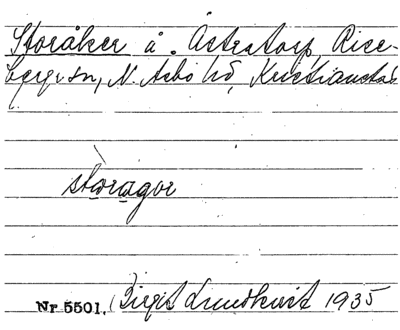 Storåker å. Åstratorp, Rise-
berga sn, N. Åsbo hd, Kristianstads
storagor
Nr 5501. Birgit Lundkvist 1935